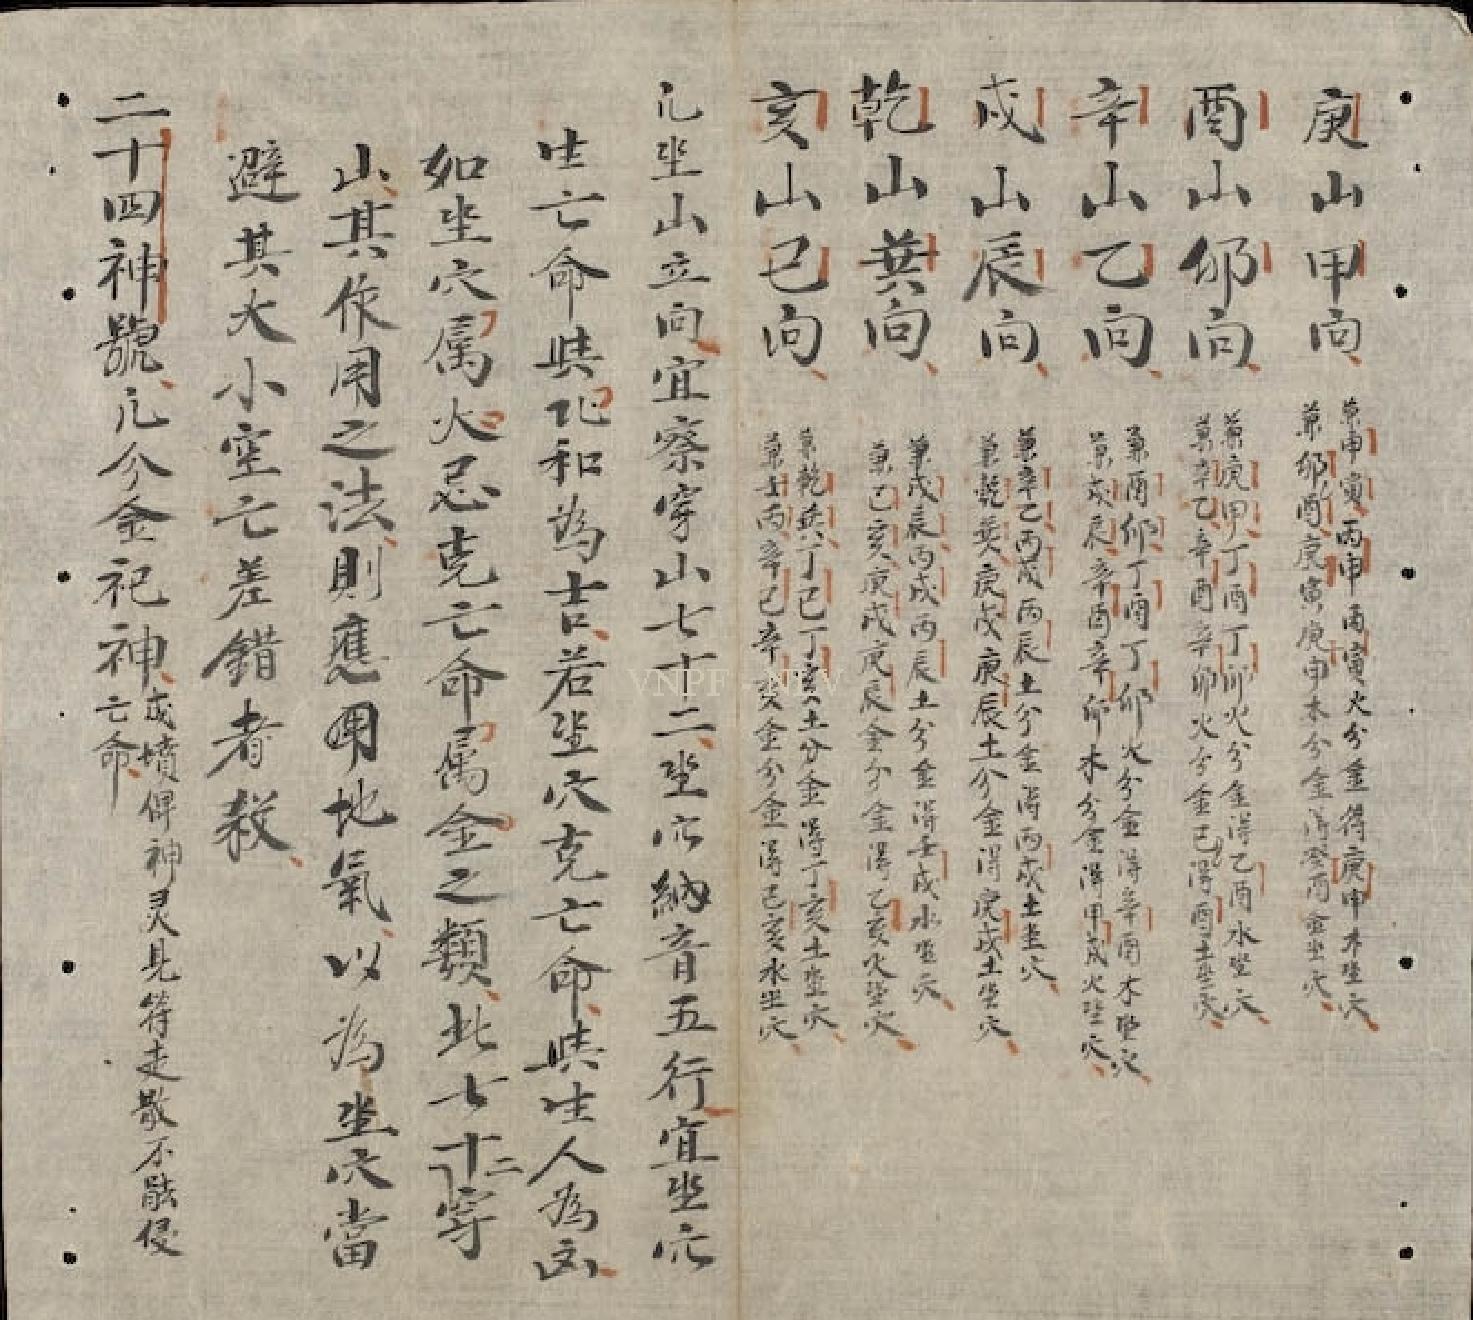 庚山甲向
兼申寅丙申丙寅火分金得庚申木坐穴
兼卯酉庚寅庚申木分金得癸酉金坐穴
酉山卯向
兼庚甲丁酉丁卯火分金得乙酉水坐穴
兼辛乙辛酉辛卯火分金已得酉土坐穴
辛山乙向
兼酉卯丁酉丁卯火分金得辛酉木坐穴
兼戌辰辛酉辛卯木分金得甲戌火坐穴
戌山辰向
兼辛乙丙戌丙辰土分金得丙戌土坐穴
兼乾巽庚戌庚辰土分金得庚戌土坐穴
乾山巽向
兼戌辰丙戌丙辰土分金得壬戌水坐穴
兼巳亥庚戌庚辰金分金得乙亥火坐穴
亥山巳向
兼乾巽丁巳丁亥土分金得丁亥土坐穴
兼壬丙辛巳辛亥金分金得己亥水坐穴
凢坐山立向宜察穿山七十二坐穴納音五行宜坐穴
生亡命與化和為吉若坐穴克亡命與生人為凶
如坐穴属火忌克亡命属金之類此七十二穿
山其作用之法則應用地氣以為坐穴當
避其大小空亡差錯者殺
二十四神號凢分金祀神
或墳俾神灵見符走散不能侵
亡命
VNPF - NLV